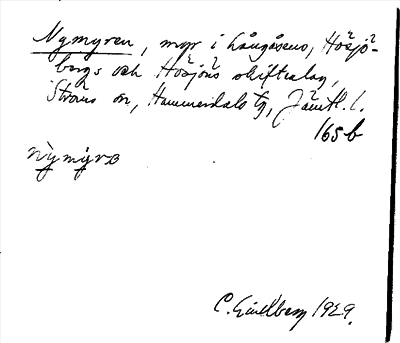 Nymyren, myr i Långåsens, Hösjö-
bergs och Hösjöns skifteslag,
Ströms sn, Hammerdals tg, Jämtl. l.
165 b
C. Lindberg 1929.